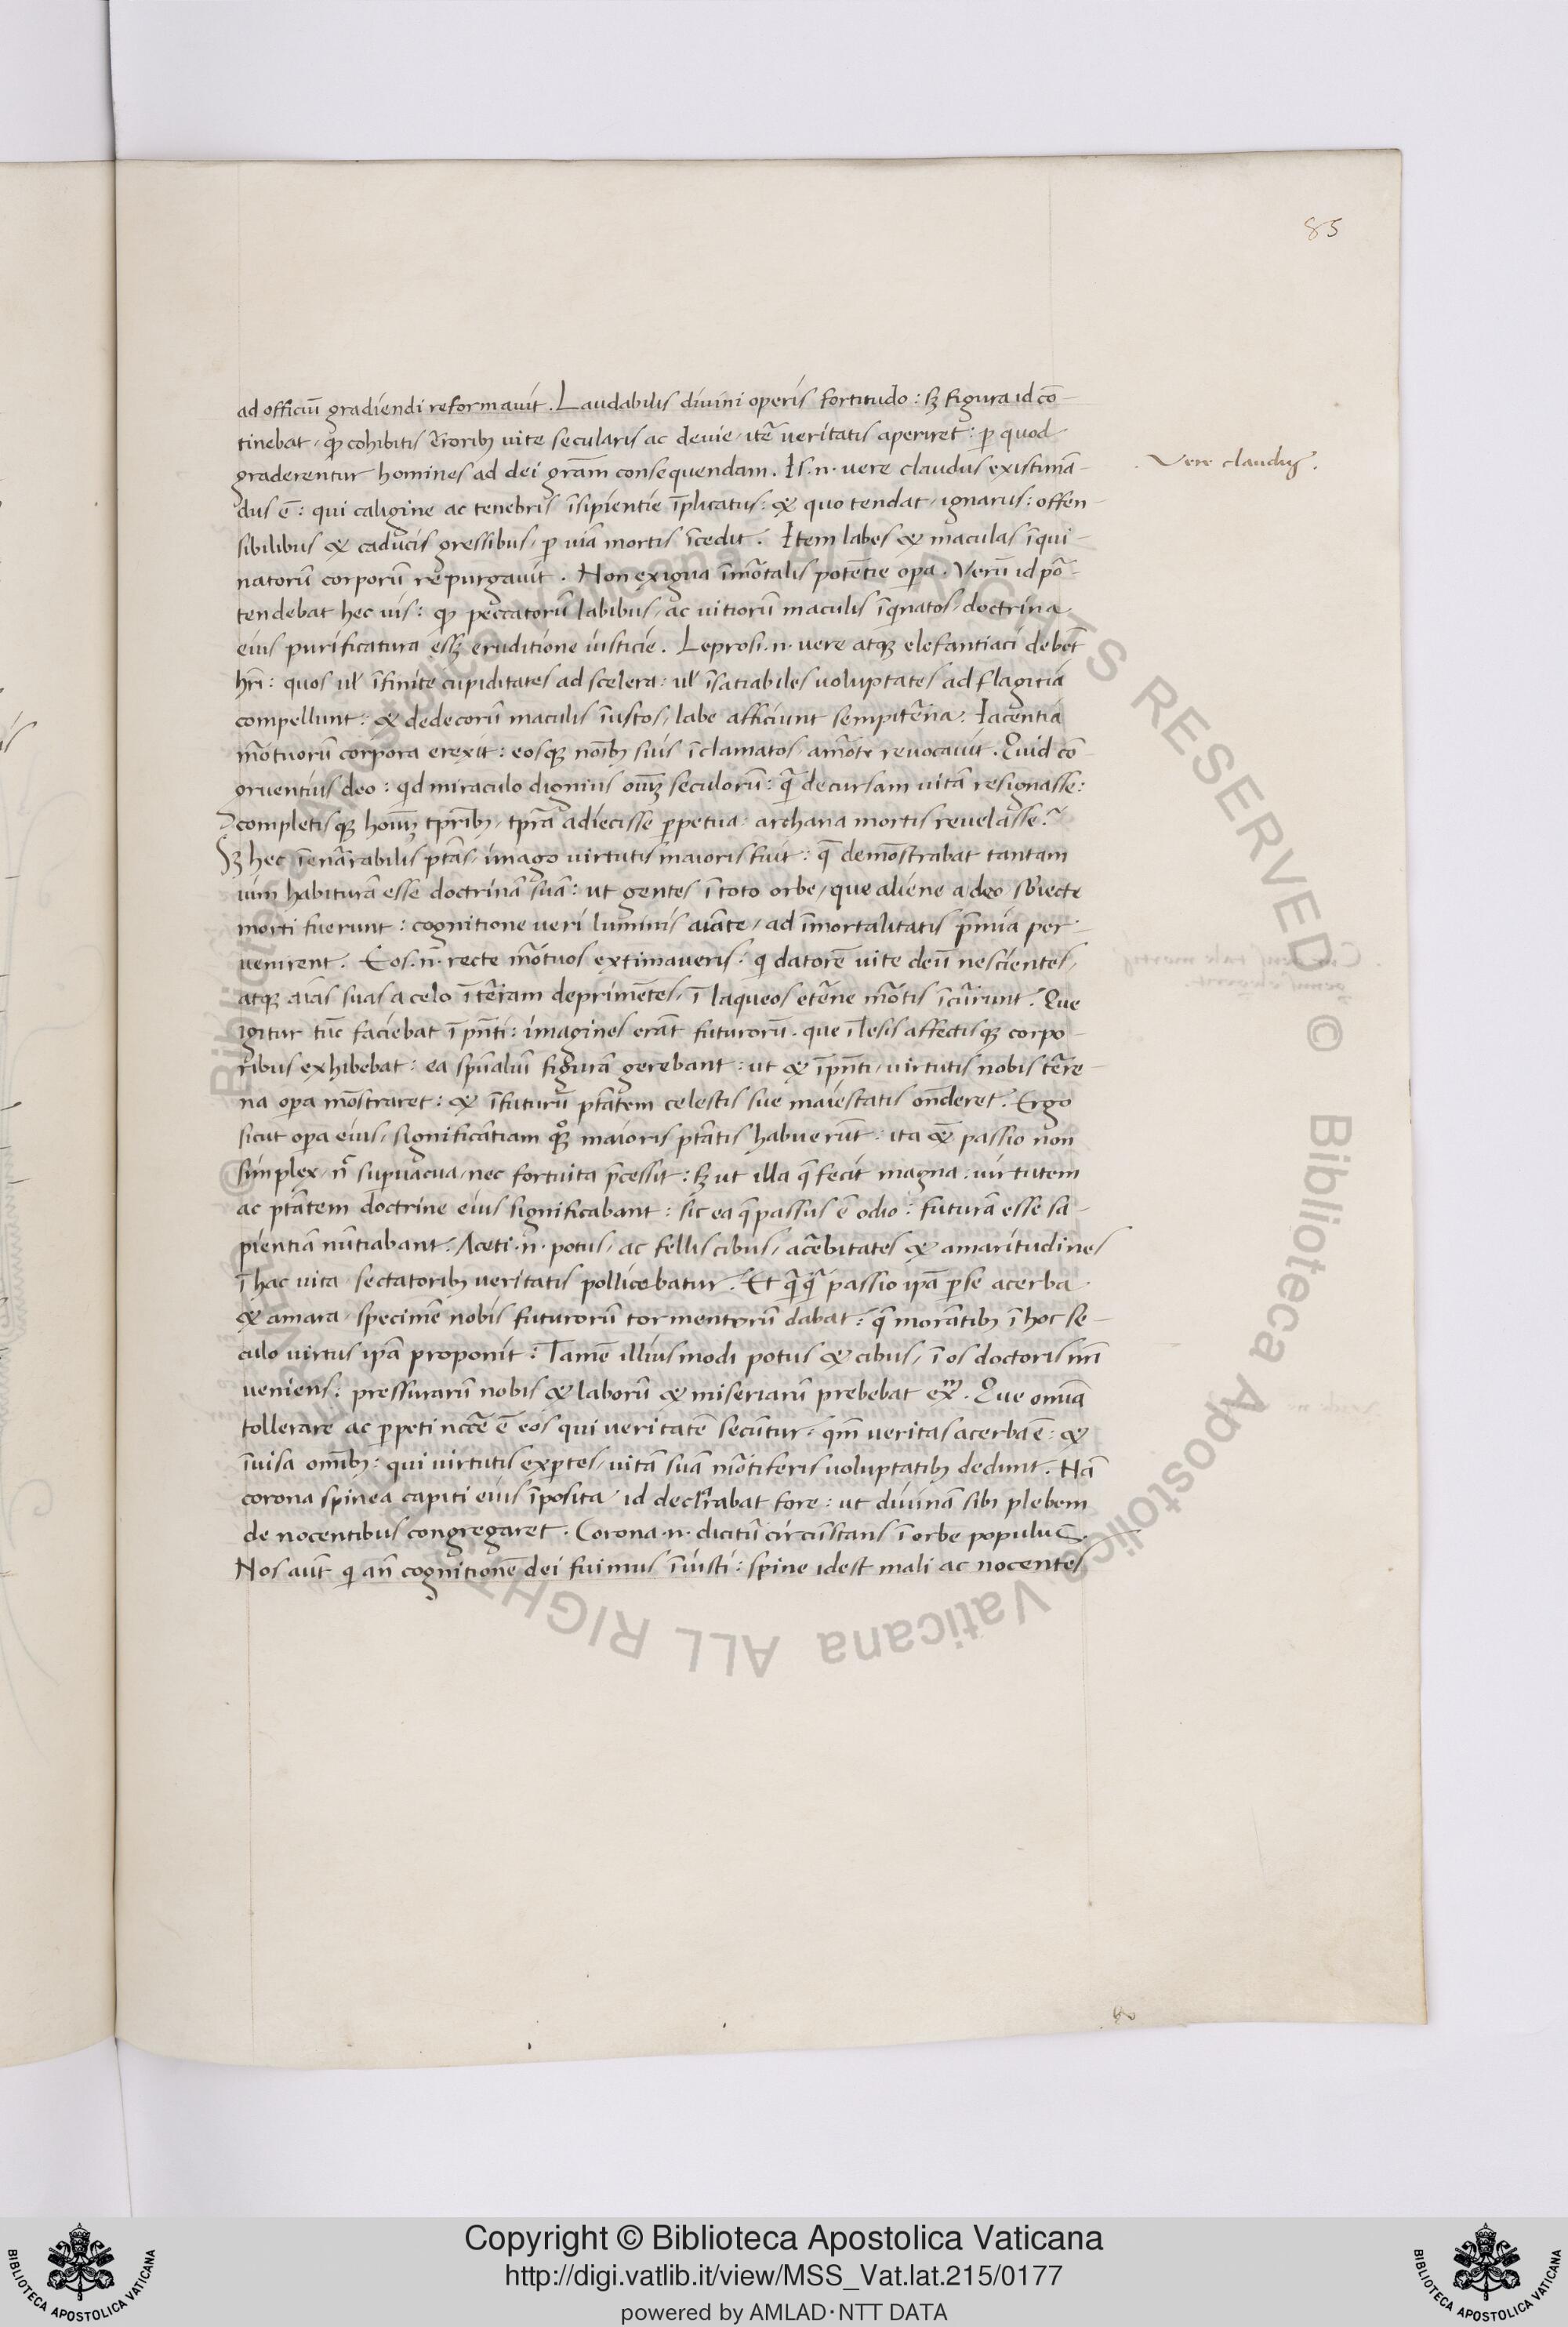 85
ad officiū gradiendi reformavit. Laudabilis divini operis fortitudo: sꝫ figura id cō-
tinebat, ꝙ cohibitis erroribꝰ vite secularis ac devie, itē veritatis aperiret: ꝑ quod
graderentur homines ad dei grām consequendam. Is .n. vere claudus existimā-
Vere claudꝰ.
dus ē: qui caligine ac tenebris īsipientie īplicatus: & quo tendat, ignarus: offen
sibilibus & caducis gressibus, ꝑ viā mortis īcedit. Item labes & maculas īqui-
natorū corporū repurgavit. Non exigua īmōtalis potētie oꝑa. Verū id pō-
tendebat hec vis: ꝙ peccatorū labibus, ac vitiorū maculis īqnatos, doctrina
eius purificatura essꝫ eruditione iusticie. Leprosi .n. vere atqꝫ elefantiaci debēt
hr̄i: quos ul̄ īfinite cupiditates ad scelera: ul̄ īsatiabiles voluptates ad flagitia
compellunt: & dedecorū maculis īustos, labe afficiunt sempit̄na. Iacentia
mōtuorū corpora erexit: eosqꝫ noībꝰ suis īclamatos, a mōte revocavit. Quid cō-
gruentius deo: qd miraculo dignius oīuꝫ seculorū: q̄ decursam vitā resignasse:
completisqꝫ hoīuꝫ tꝑribꝰ, tꝑra adiecisse ꝑpetua: archana mortis revelasse?
Sꝫ hec īenārabilis ptās, imago virtutis maioris fuit: q̄ demōstrabat tantam
vim habiturā esse doctrinā suā: ut gentes ī toto orbe, que aliene a deo sb̄iecte
morti fuerunt: cognitione veri luminis aīate, ad īmortalitatis p̄mia per-
venirent. Eos .n. recte mōtuos extimaveris. q datorē vite deū nescientes,
atqꝫ aīas suas a celo ī t̄ram deprimētes, ī laqueos et̄ne mōtis īcūrunt. Que
igitur tūc faciebat ī pn̄ti: imagines erāt futurorū. que ī lesis affectisqꝫ corpo-
ribus exhibebat: ea spūalium figurā gerebant: ut & ī pn̄ti, virtutis nobis t̄re-
na oꝑa mōstraret: & ī futurū ptātem celestis sue maiestatis onderet. Ergo
sicut oꝑa eius, significātiam qꝫ maioris ptātis habuerūt: ita & passio non
simplex, n̄ suꝑvacua, nec fortuita p̄cessit: sꝫ ut illa q̄ fecit magna, virtutem
ac ptātem doctrine eius significabant: sic ea q̄ passus ē odio: futurā esse sa-
pientiā nūtiabant. Aceti .n. potus, ac fellis cibus, ac̄bitates & amaritudines
ī hac vita, sectatoribꝰ veritatis pollicebatur. Et q̄q̄ passio ipā ꝑ se acerba
& amara, specimē nobis futurorū tormentorū dabat: q̄ morātibꝰ ī hoc se-
culo virtus ipā proponit: Tamē illiusmodi potus & cibus, ī os doctoris nr̄i
veniens: pressurarū nobis & laborū & miseriarū prebebat ex. Que omīa
tollerare ac ꝑpeti nccē ē eos qui veritatē secūtur. qm̄ veritas acerba ē: &
īvisa omībꝰ: qui virtutis exꝑtes, vitā suā mōtiferis voluptatibꝰ dedunt. Nā
corona spinea capiti eius īposita, id declrabat fore: ut divinā sibi plebem
de nocentibus congregaret. Corona .n. dicitū circūstans ī orbe populus.
Nos aūt q an̄ cognitionē dei fuimus īiusti: spine idest mali ac nocentes
© Biblioteca Apostolica Vaticana ALL RIGHTS RESERVED
Copyright © Biblioteca Apostolica Vaticana
http://digi.vatlib.it/view/MSS_Vat.lat.215/0177
powered by AMLAD·NTT DATA
BIBLIOTECA APOSTOLICA VATICANA
BIBLIOTECA APOSTOLICA VATICANA